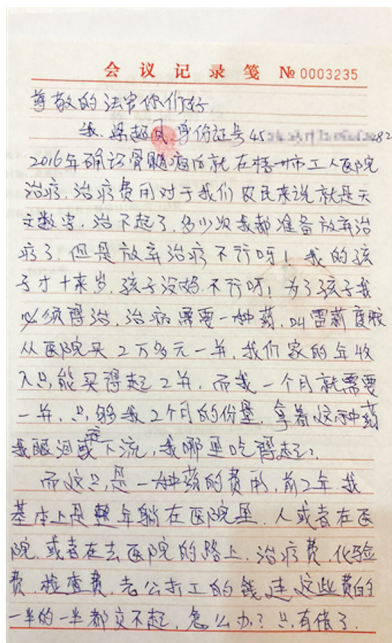 会议记录笺 № 0003235
尊敬的法官你们好
我,梁超凤,身份证号45
2016年确诊骨髓瘤后就在梧州市工人医院
治疗,治疗费用对于我们农民来说就是天
文数字,治不起了,多少次我都准备放弃治
疗了,但是放弃治疗不行呀!我的孩
子才十来岁,孩子没妈不行呀!为了孩子我
必须得治,治病需要一种药,叫雷
从医院买2万多元一并,我们家的年收
入只能买得起2并,而我一个月就需要
一并,只够我2个月的份量,拿着这种药
我眼泪往下流,我哪里吃得起?
而这只是一种药的费用,前2年我
基本上是整年躺在医院里,人或者在医
院,或者在去医院的路上,治疗费,化验
费,检查费,老公打工的钱连这些费的
一半的一半都交不起,怎么办?只有借了